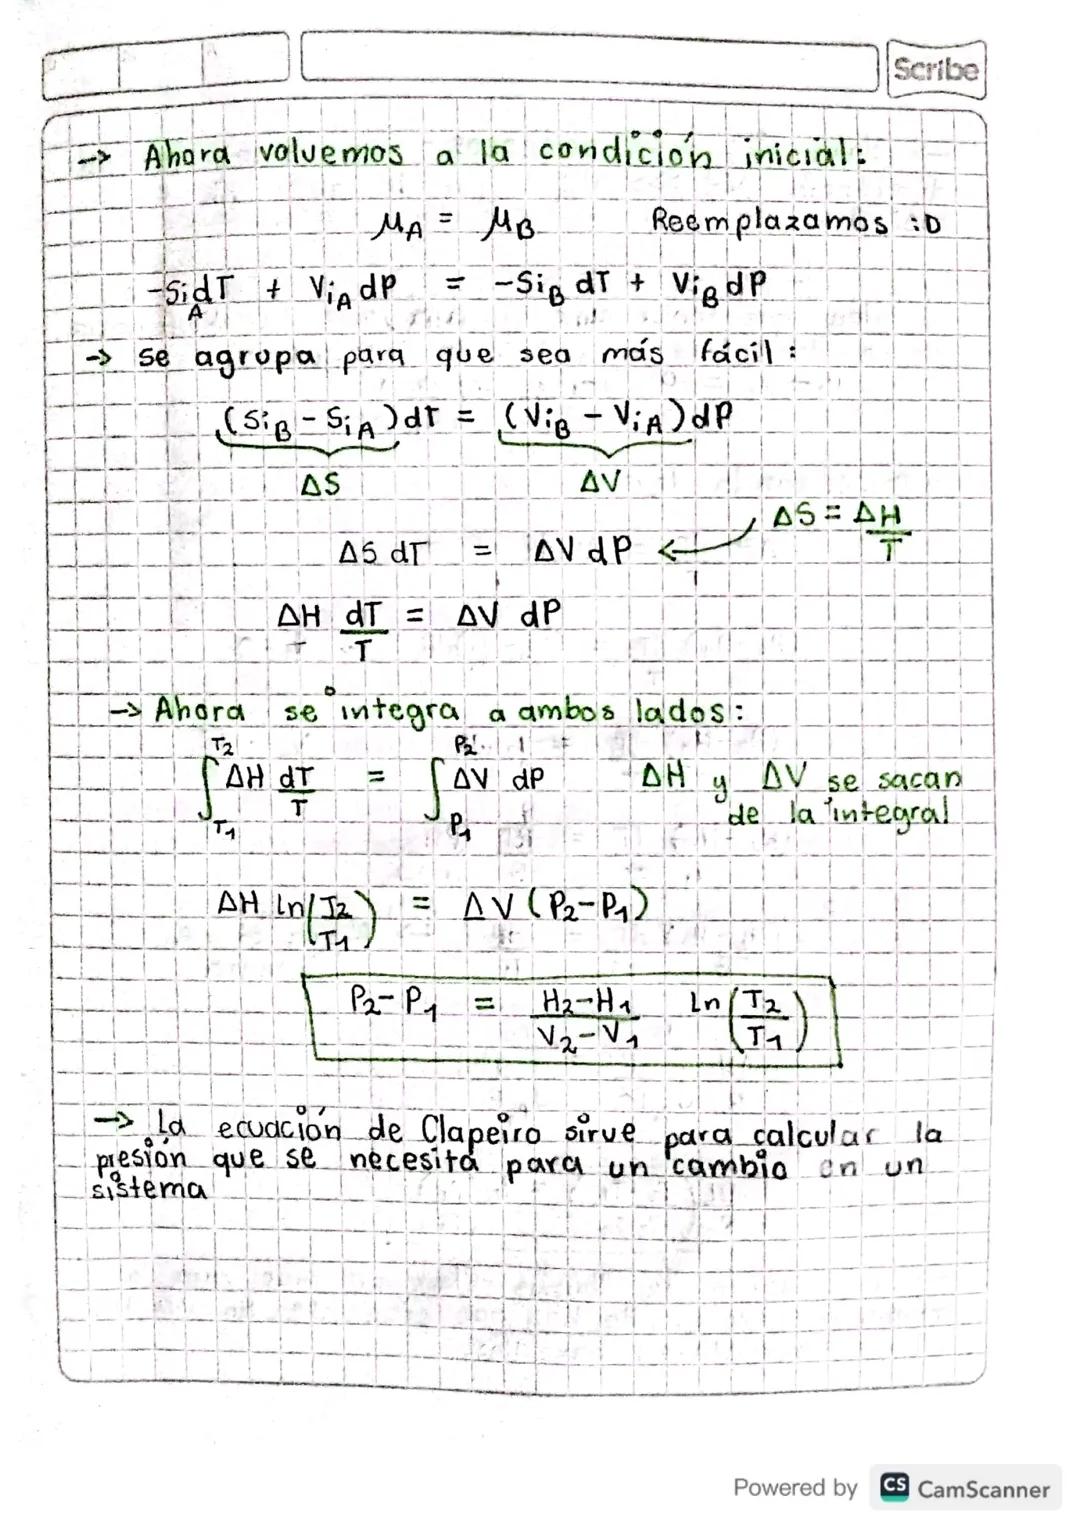 Scribe
→ Ahora volvemos a la condición inicial:
μA = μB Reemplazamos :D
-SiA dT + ViA dP = -SiB dT + ViB dP
→ se agrupa para que sea más fácil:
(SiB - SiA) dT = (ViB - ViA) dP
ΔS ΔV
ΔS = ΔH/T
ΔS dT = ΔV dP ←
ΔH dT/T = ΔV dP
→ Ahora se integra a ambos lados:
∫T1T2 ΔH dT/T = ∫P1P2 ΔV dP ΔH y ΔV se sacan
de la integral
ΔH ln(T2/T1) = ΔV (P2-P1)
P2-P1 = H2-H1/V2-V1 ln(T2/T1)
→ La ecuación de Clapeiro sirve para calcular la
presión que se necesita para un cambio en un
sistema
Powered by CS CamScanner